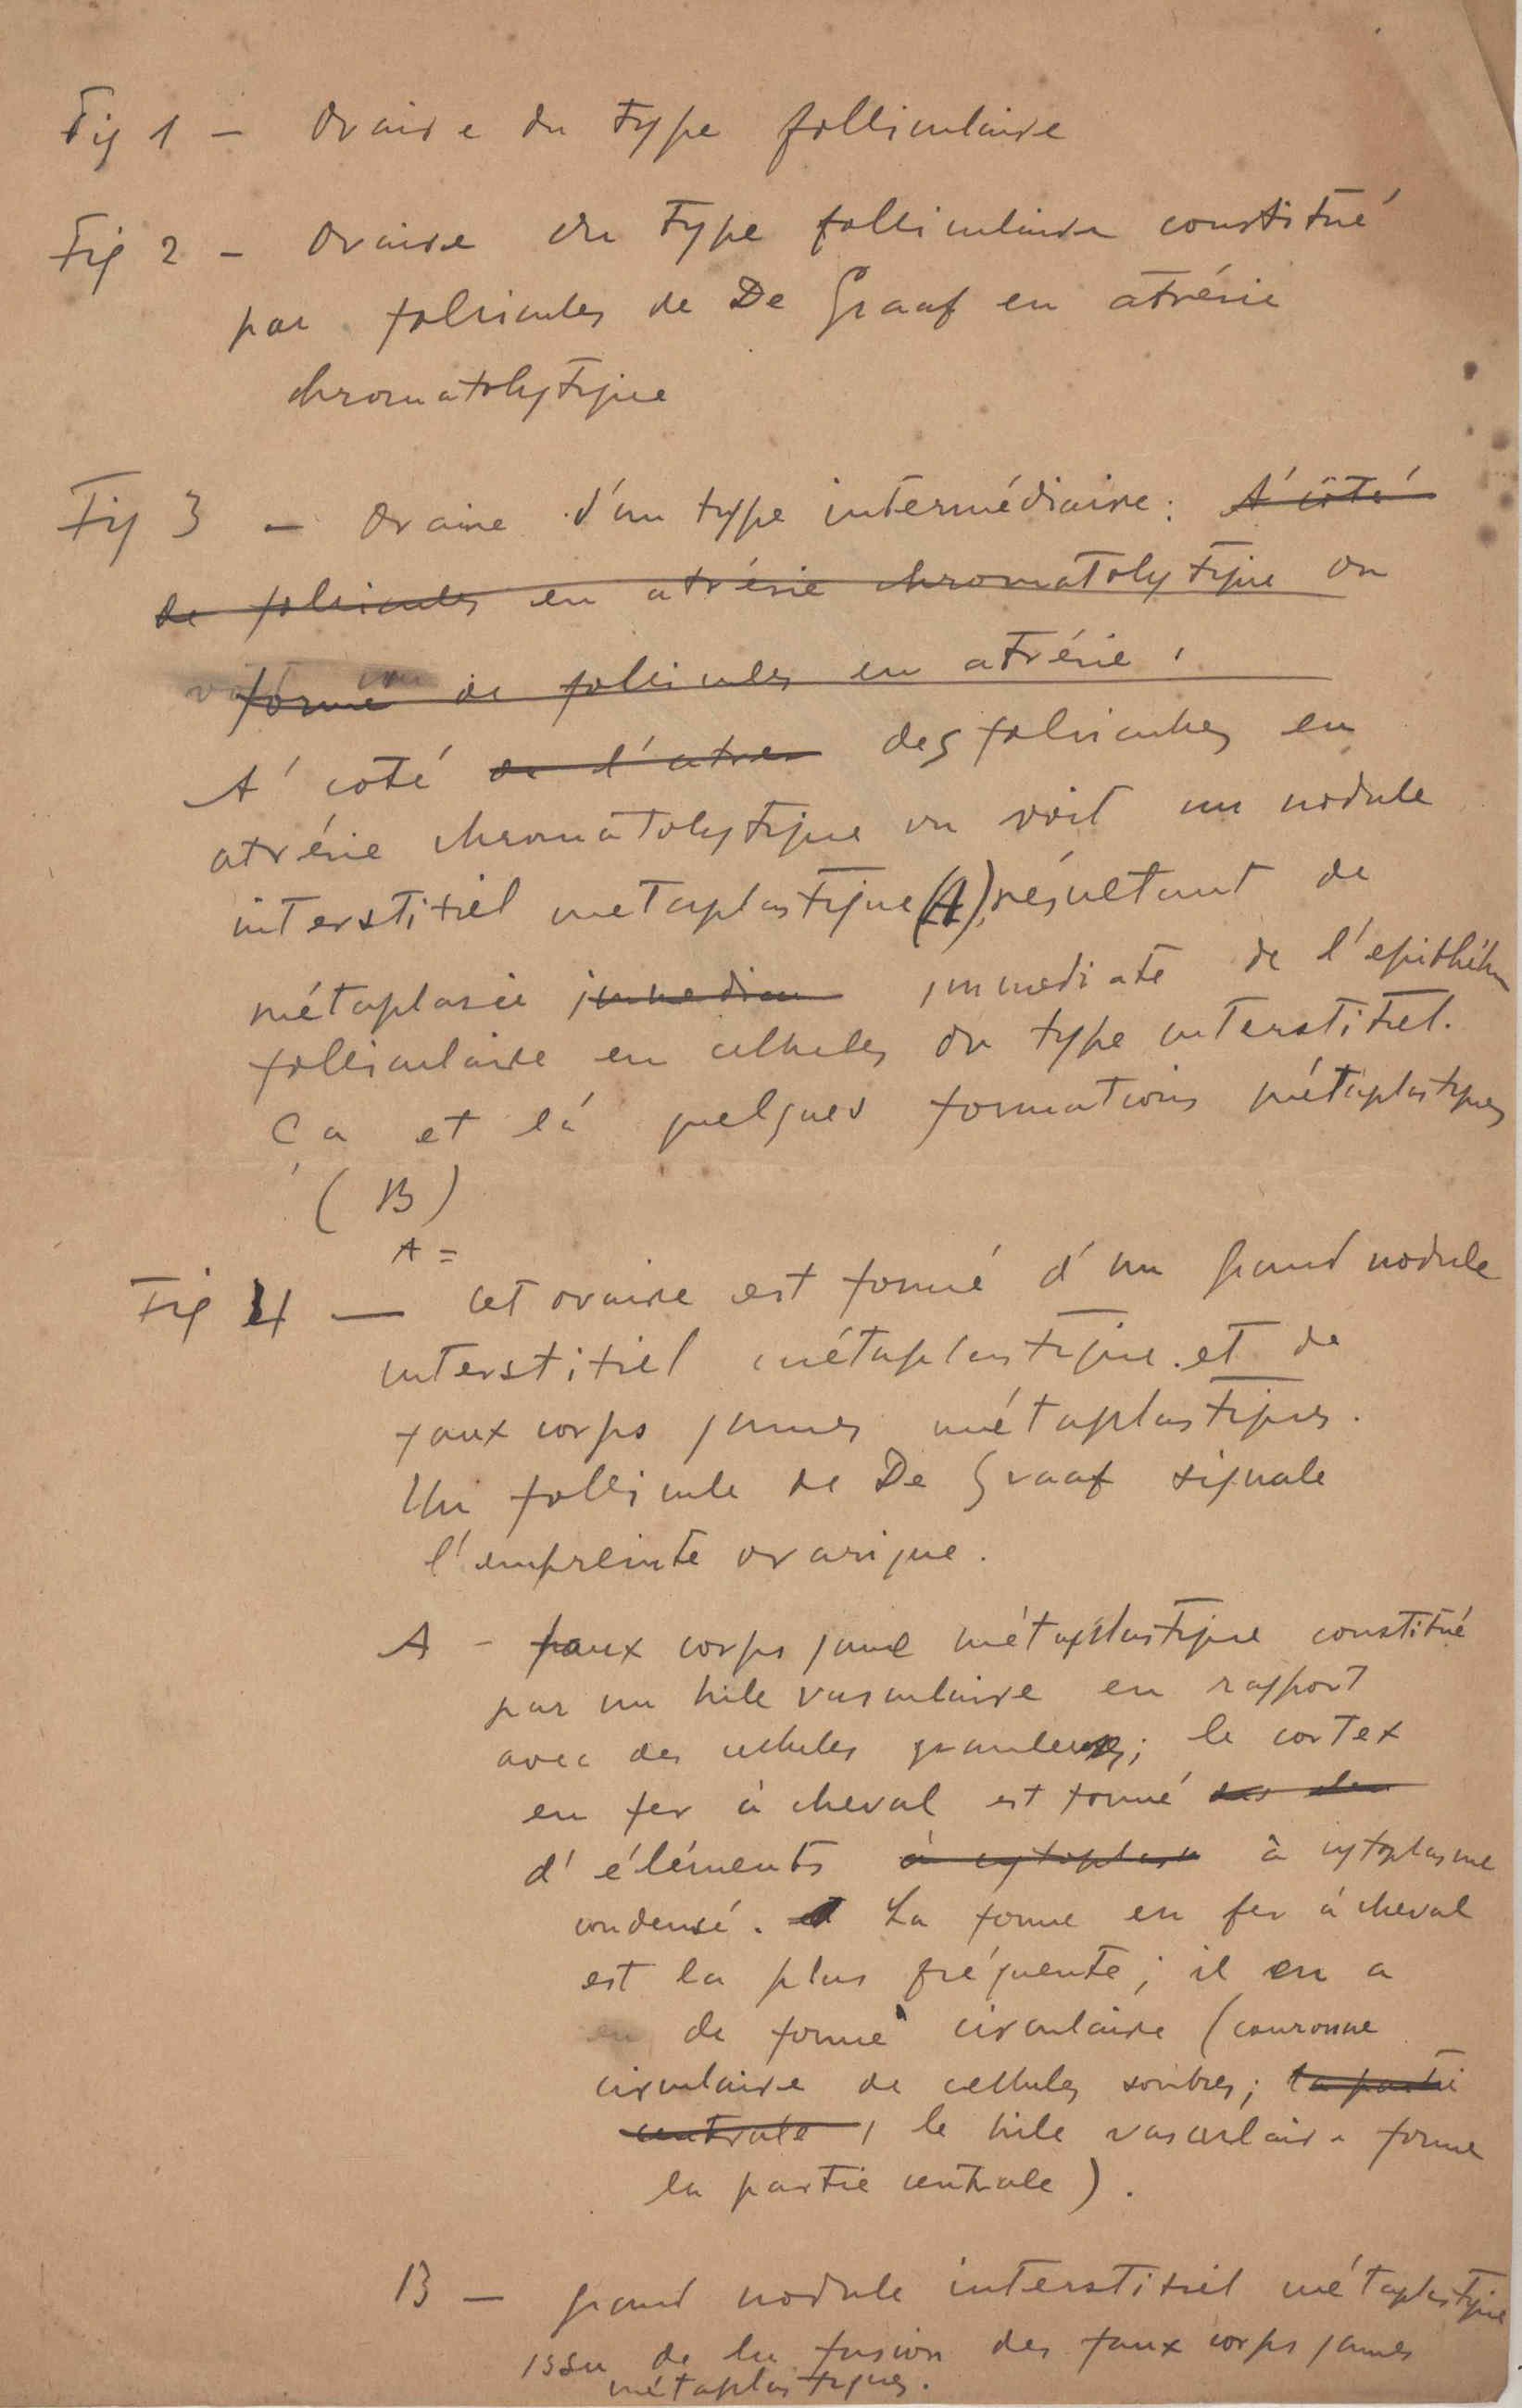 Fig 1 — Ovaire du type folliculaire
Fig 2 — Ovaire du type folliculaire constitué
par follicules de De Graaf en atrésie
chromatolytique
Fig 3 — Ovaire d'un type intermédiaire : A' côté
de follicules en atrésie chromatolytique on
forme de follicules en atrésie .
A' coté de l'atres des follicules en
atrésie chromatolytique on voit un nodule
interstitiel metaplastique (A), résultant de
métaplasie immedian immediate de l'epithélium
folliculaire en cellules du type interstitiel.
Ça et lá quelques formations métaplastiques
(B)
A =
Fig 4 — Cet ovaire est formé d'un grand nodule
interstitiel métaplastique et de
faux corps jaunes métaplastiques.
Un follicule de De Graaf signale
l'empreinte ovarique.
A — faux corps jaune métaplastique constitué
par un hile vasculaire en rapport
avec des cellules granuleuses; le cortex
en fer à cheval est formé des de
d'éléments à cytoplasm à cytoplasme
condensé. La forme en fer á cheval
est la plus fréquente; il en a
en de forme circulaire (couronne
circulaire de cellules sombres; la partie
centrale , le hile vasculaire forme
la partie centrale).
B — grand nodule interstitiel métaplastique
issu de la fusion des faux corps jaunes
métaplastiques.